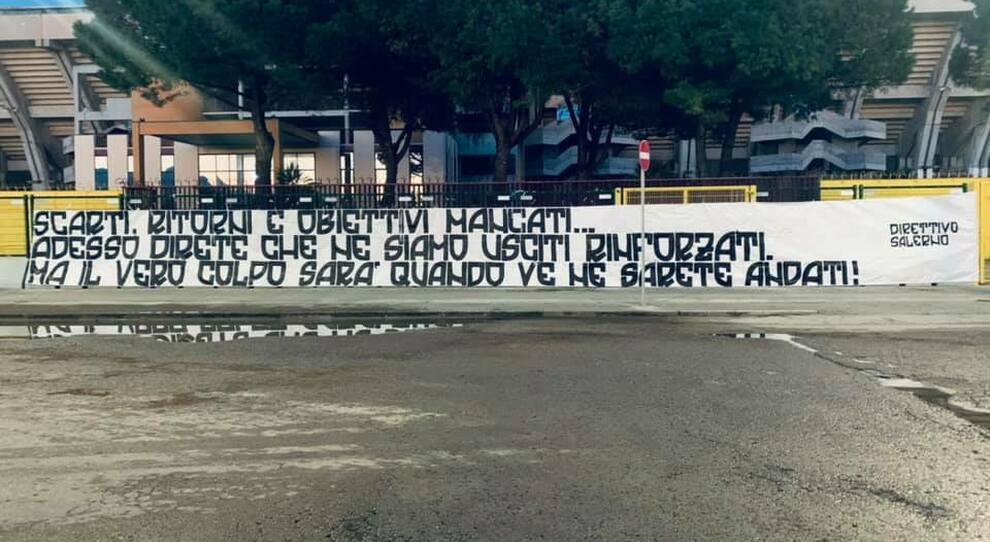 SCARTI, RITORNI E OBIETTIVI MANCATI...
ADESSO DIRETE CHE NE SIAMO USCITI RINFORZATI.
MA IL VERO COLPO SARA' QUANDO VE NE SARETE ANDATI!
DIRETTIVO
SALERNO